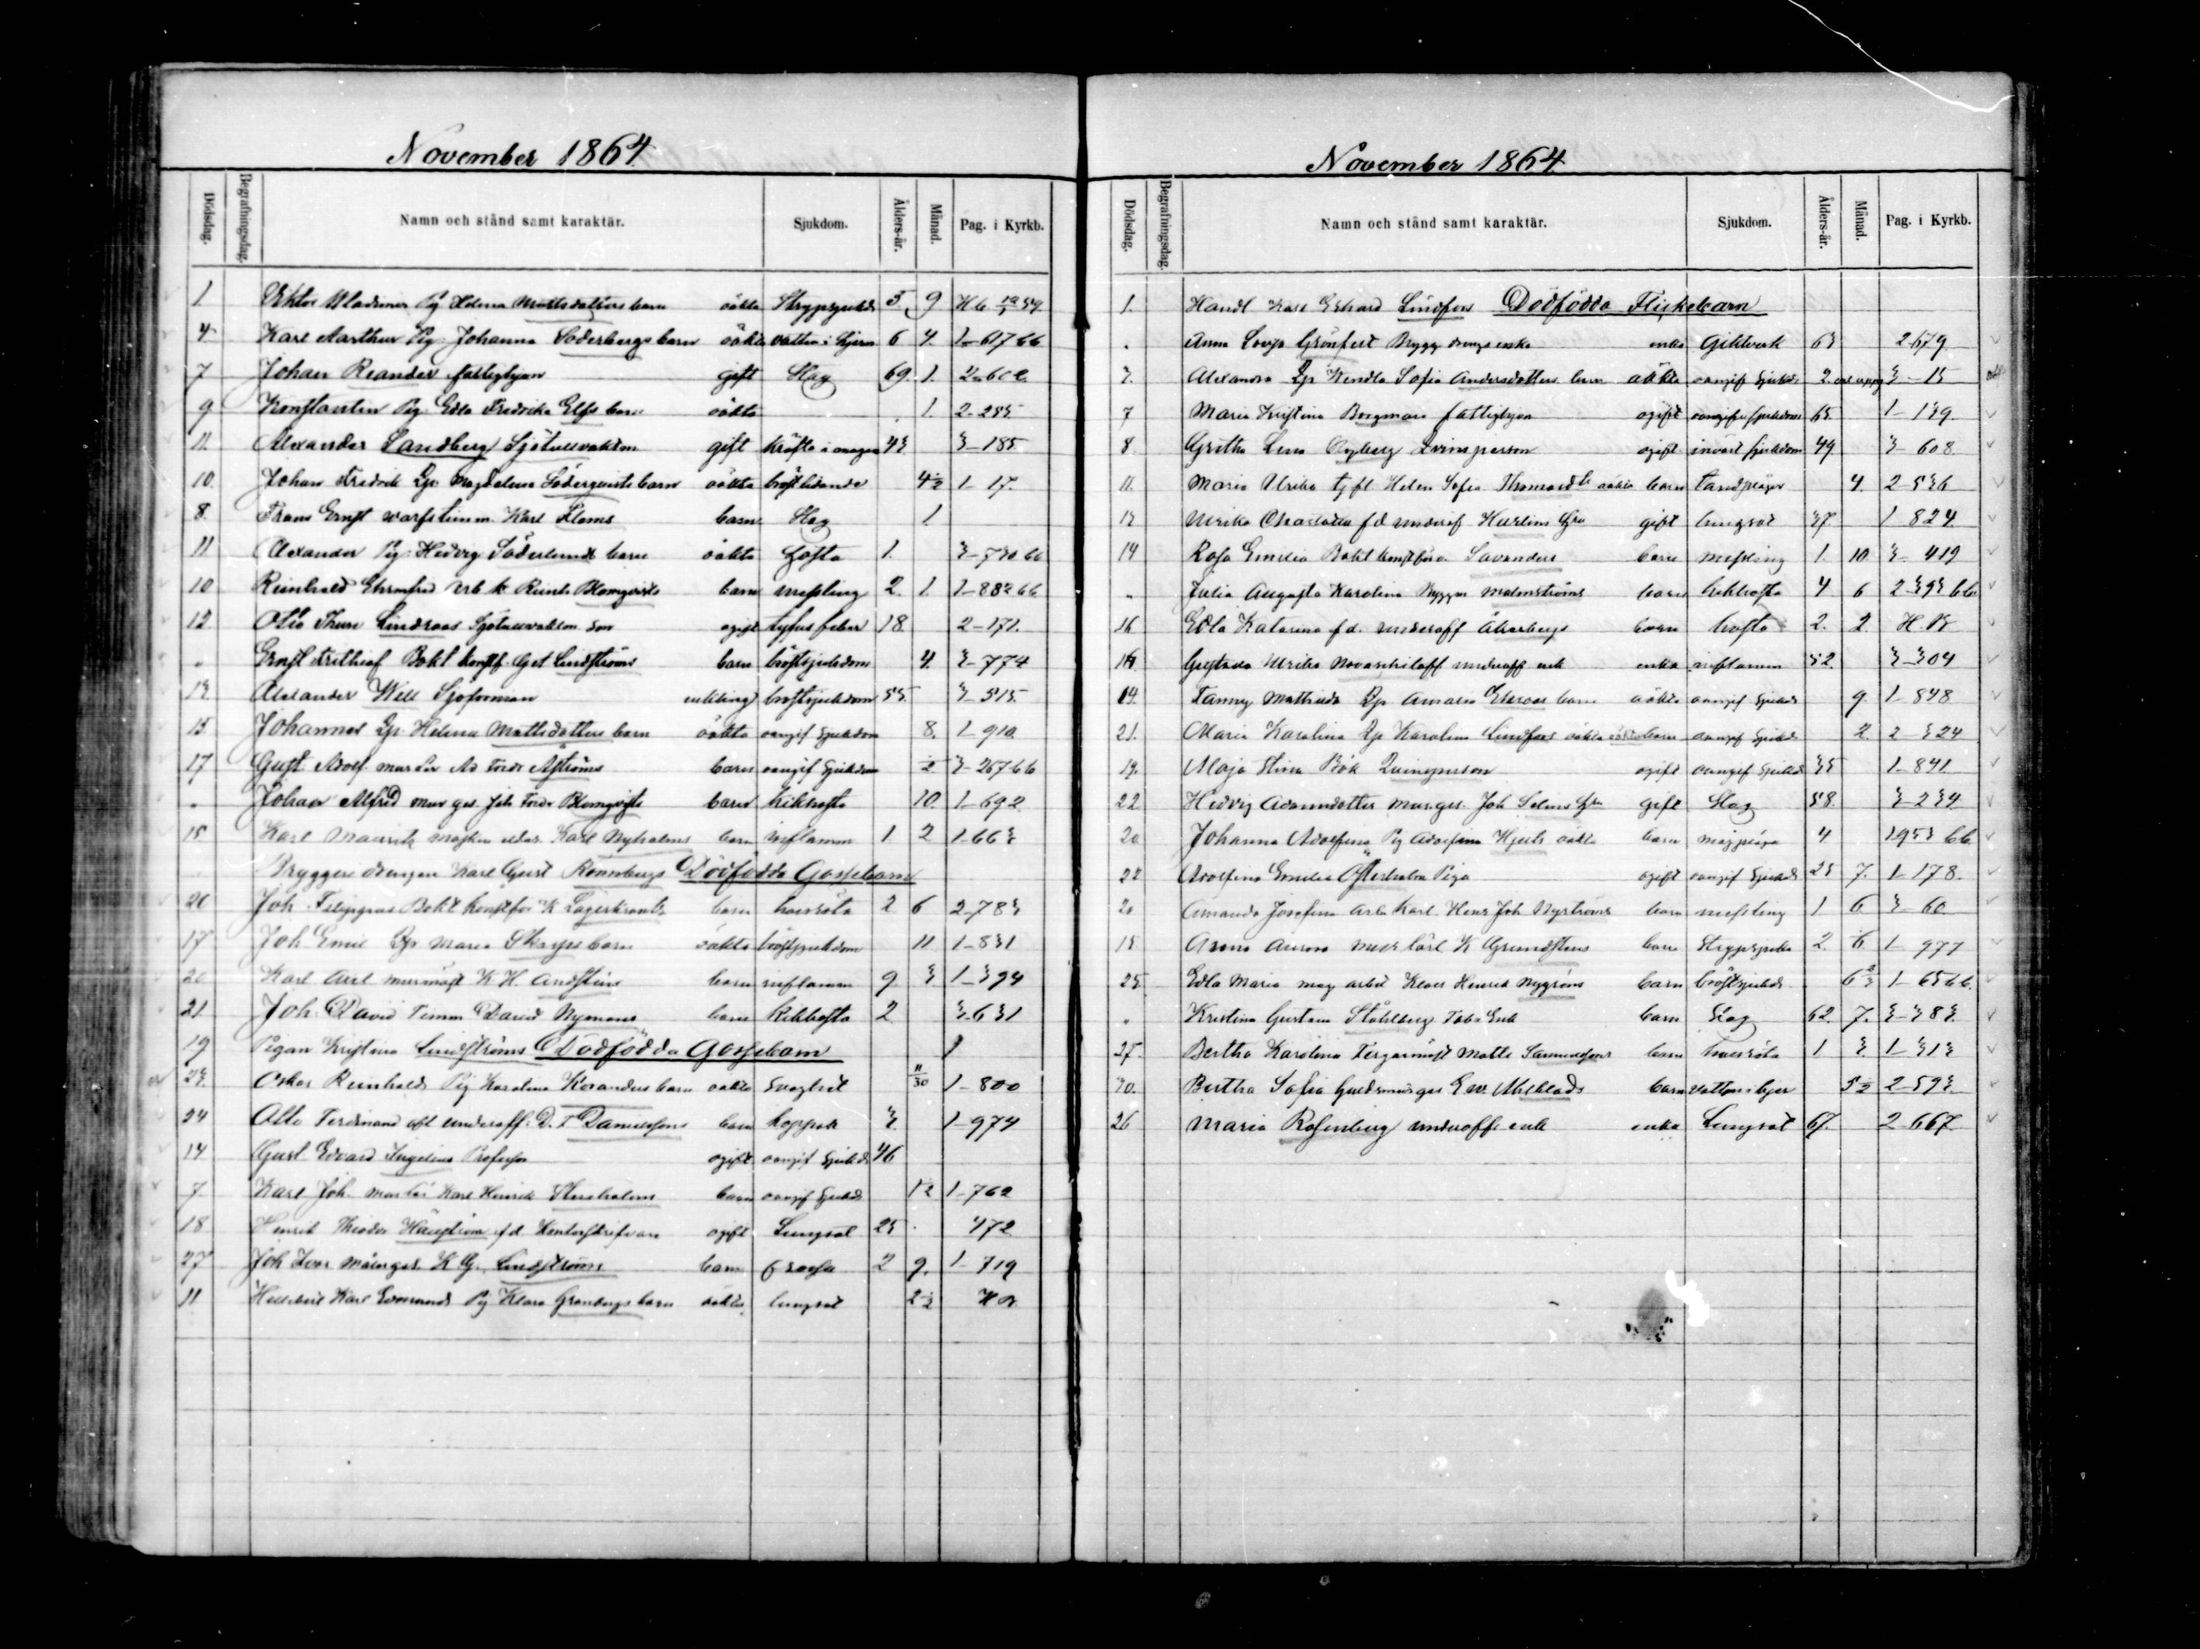 November 1864
Dödsdag. Begrafningsdag. Namn och stånd samt karaktär. Sjukdom. Ålders-år. Månad. Pag. i Kyrkb.
1 Viktor Wladimir Pig Helena Mattsdotters barn oäkta Strypsjukd 5 9
4 Karl Aarthur Pig. Johanna Söderbergs barn oäkta vatten i hjern 6 4. 1-617 bb
7 Johan Reander fattighjon gift Slag 69. 1. 2-602
9 Konstantin Pig. Edla Fredrika Elfs barn oäkta 1. 2-235
11. Alexander Sandberg Sjötullvaktm gift kräfta i magen 43 3-185
10. Johan Fredrik Qp. Magdalena Söderqvists barn oäkta bröstlidande 4½ 1-17.
8. Frans Ernst varfstimm. Karl Floms barn Slag 1
11 Alexander Pig. Hedvig Söderlunds barn oäkta hosta 1. 3-730 bb
10 Reinhold Ehrnfrid Arb. k Reinh. Blomqvists barn messling 2. 1 1-882 bb
12 Otto Thure Lindroos Sjötullvaktm. son ogift tyfus feber 18. 2-171.
" Ernst Frithiof Bokh konstf. Gst Lindströms barn bröstsjukdom 4. 3-774
13 Alexander Well Sjöforman enkling bröstsjukdom 55 3-515.
15. Johannes Qp. Helena Mattsdotters barn oäkta oangif Sjukdom 8. 1-910.
17 Gust Adolf. murlär Ad Ferd Aströms barn oangif Sjukdom ½ 3-267 bb
" Johan Alfred mur ges. Joh Ferd Blomqvists barn kikhosta 10. 1-692.
15 Karl Mauritz maskin eldar. Karl Nyholms barn inflamm 1 2 1-663
Bryggeri drängen Karl Gust Rönnbergs Dödfödda Gossebarn
26 Joh. Filippus Bokh konstför K Lagerkrants barn halsröta 2 6 2-783
17 Joh Emil Qp. Maria Skarps barn oäkta bröstsjukdom 11 1-831
20 Karl Axel murmäst K H. Andsténs barn inflamm 9 3 1-394
21 Joh. David Timm David Nymans barn Kikhosta 2 3-631
19 Pigan Kristina Lindströms Dödfödda Gossebarn 1
23. Oskar Reinhold Pig Karolina Koranders barn oäkta Svaghet 11/30 1-800
24 Otto Ferdinand afl underoff. D. F Danielssons barn koppor 3. 1-974
14 Gust Edvard Ingelius Professor ogift oangif Sjukd 46
7 Karl Joh. murlär Karl Henrik Stenholms barn oangif Sjukd 1½ 1-762
18 Henrik Theodor Häggström f.d Kontorskrifvare ogift Lungsot 25 472
27 Joh Ivar målarges. K G. Lindströms barn frossa 2 9. 1-719
11 Hellebert Karl Edmund Pig Klara Granbergs barn oäkta lungsot 2½
November 1864
Dödsdag. Begrafningsdag. Namn och stånd samt karaktär. Sjukdom. Ålders-år. Månad. Pag. i Kyrkb.
1. Handl Karl Edvard Lindfors Dödfödda Flickebarn
" Anna Lovisa Grönfert Brygg drängs enka enka Giktverk 63 2-679
3. Alexandra Qp Wendla Sofia Andersdotters barn oäkta oangif Sjukd 2. 3-15
7 Maria Kristina Borgman fattighjon ogift oangifv sjukdom 65. 1-139.
8. Gretha Lena Qvinsperson ogift invärt sjukdom 49 3-608
11. Maria Ulrika tjfl. Helen Sofia Thomasds oäkta barn tandplågor 4. 2-536
13 Ulrika Charlotta f.d underof Hurlins Hru gift lungsot 37. 1 824
14 Rosa Emilia Bokh konstföra Savanders barn messling 1. 10. 3-419
" Julia Augusta Karolina Bygger Malmströms barn kikhosta 4 6 2-393 bb
16 Edla Katarina f.d. underoff Åkerbergs barn hosta 2. 2. H.K
16 Gustava Ulrika underoff enk enka inflamm 52. 3-304
14. Fanny Mathilda Qp Amalia barn oäkta oangif Sjukd 9. 1-848
21. Maria Karolina Qp Karolina Lindfors oäkta barn oangif Sjukd 2. 2-324
19. Maja Stina Bök Qvinsperson ogift oangif Sjukd 35 1-841
22 Hedvig Adamsdotter murges. Joh Selins Hru gift Slag 58. 3-234
20 Johanna Adolfina Pig Adolfina Hjelts oäkta barn magplåga 4 1953 bb.
22 Adolfina Emilia Österholm Piga ogift oangif Sjukd 25 7. 1-178.
20 Amanda Josefina Arb. Karl. Hens Joh Nyströms barn messling 1. 6 3-60
15 Anna Aurora murlärl K Grundstens barn Strypsjuka 2. 6 1-977
25. Edla Maria mag arbet Klaes Henrik Nygréns barn bröstsjukd 6⅔ 1-656 b.
" Kristina Gustava Ståhlberg Tobs Enk barn Slag 62. 7. 3-383.
27. Bertha Karolina Färgarmäst Matts Samuelssons barn halsröta 1 3. 1-313
30. Bertha Sofia Guldsmedsges E W. Ahlblads barn vatten i hjer 5½ 2-593.
26 Maria Rosenberg underoff. enk enka Lungsot 67. 2 667.